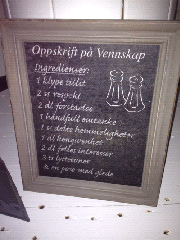 Oppskrift på Vennskap
Ingredienser:
1 klype tillit
2 ts respekt
2 dl forståelse
1 håndfull omtanke
1 ts delte hemmeligheter
1 dl hengivenhet
2 dl felles interesser
3 ts lystenner
& en porsj med glede